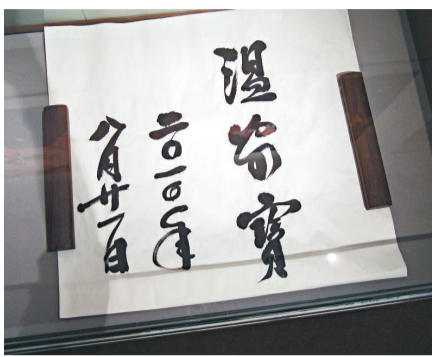 温家寶
二〇一〇年
八月廿一日